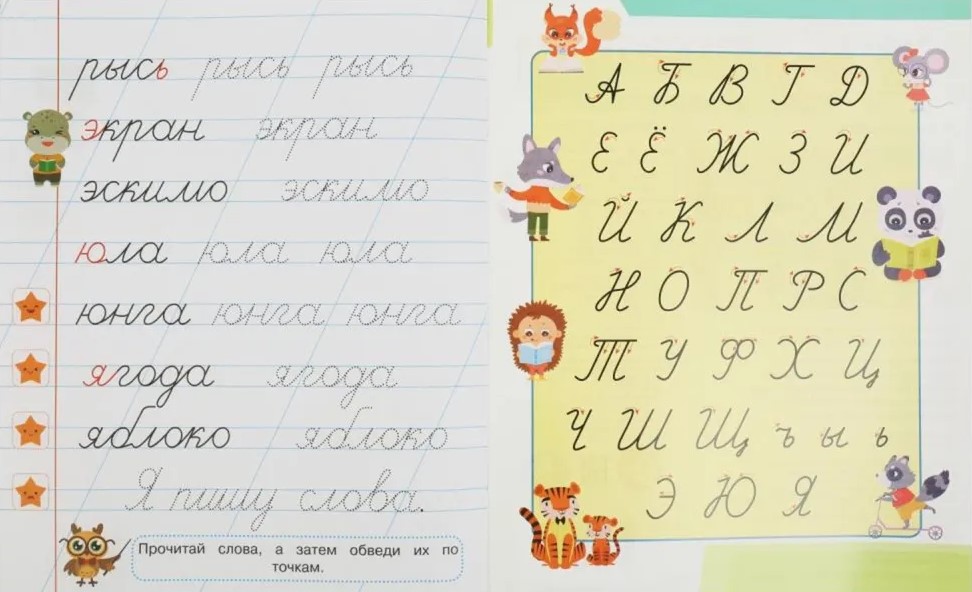 рысь рысь рысь
экран экран
эскимо эскимо
юла юла юла
юнга юнга юнга
ягода ягода
яблоко яблоко
Я пишу слова.
Прочитай слова, а затем обведи их по
точкам.
А Б В Г Д
Е Ё Ж З И
Й К Л М
Н О П Р С
Т У Ф Х Ц
Ч Ш Щ ъ ы ь
Э Ю Я